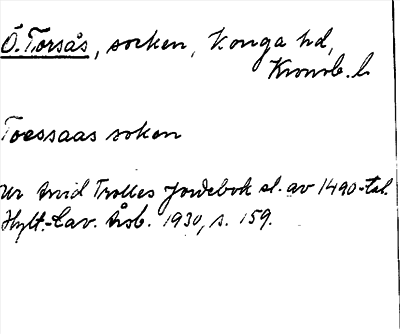 Ö. Torsås, socken, Konga hd,
Kronob. l.
Toessaas soken
Ur Arvid Trolles jordebok sl. av 1490-tal.
Hylt.-Cav. Årsb. 1930, s. 159.